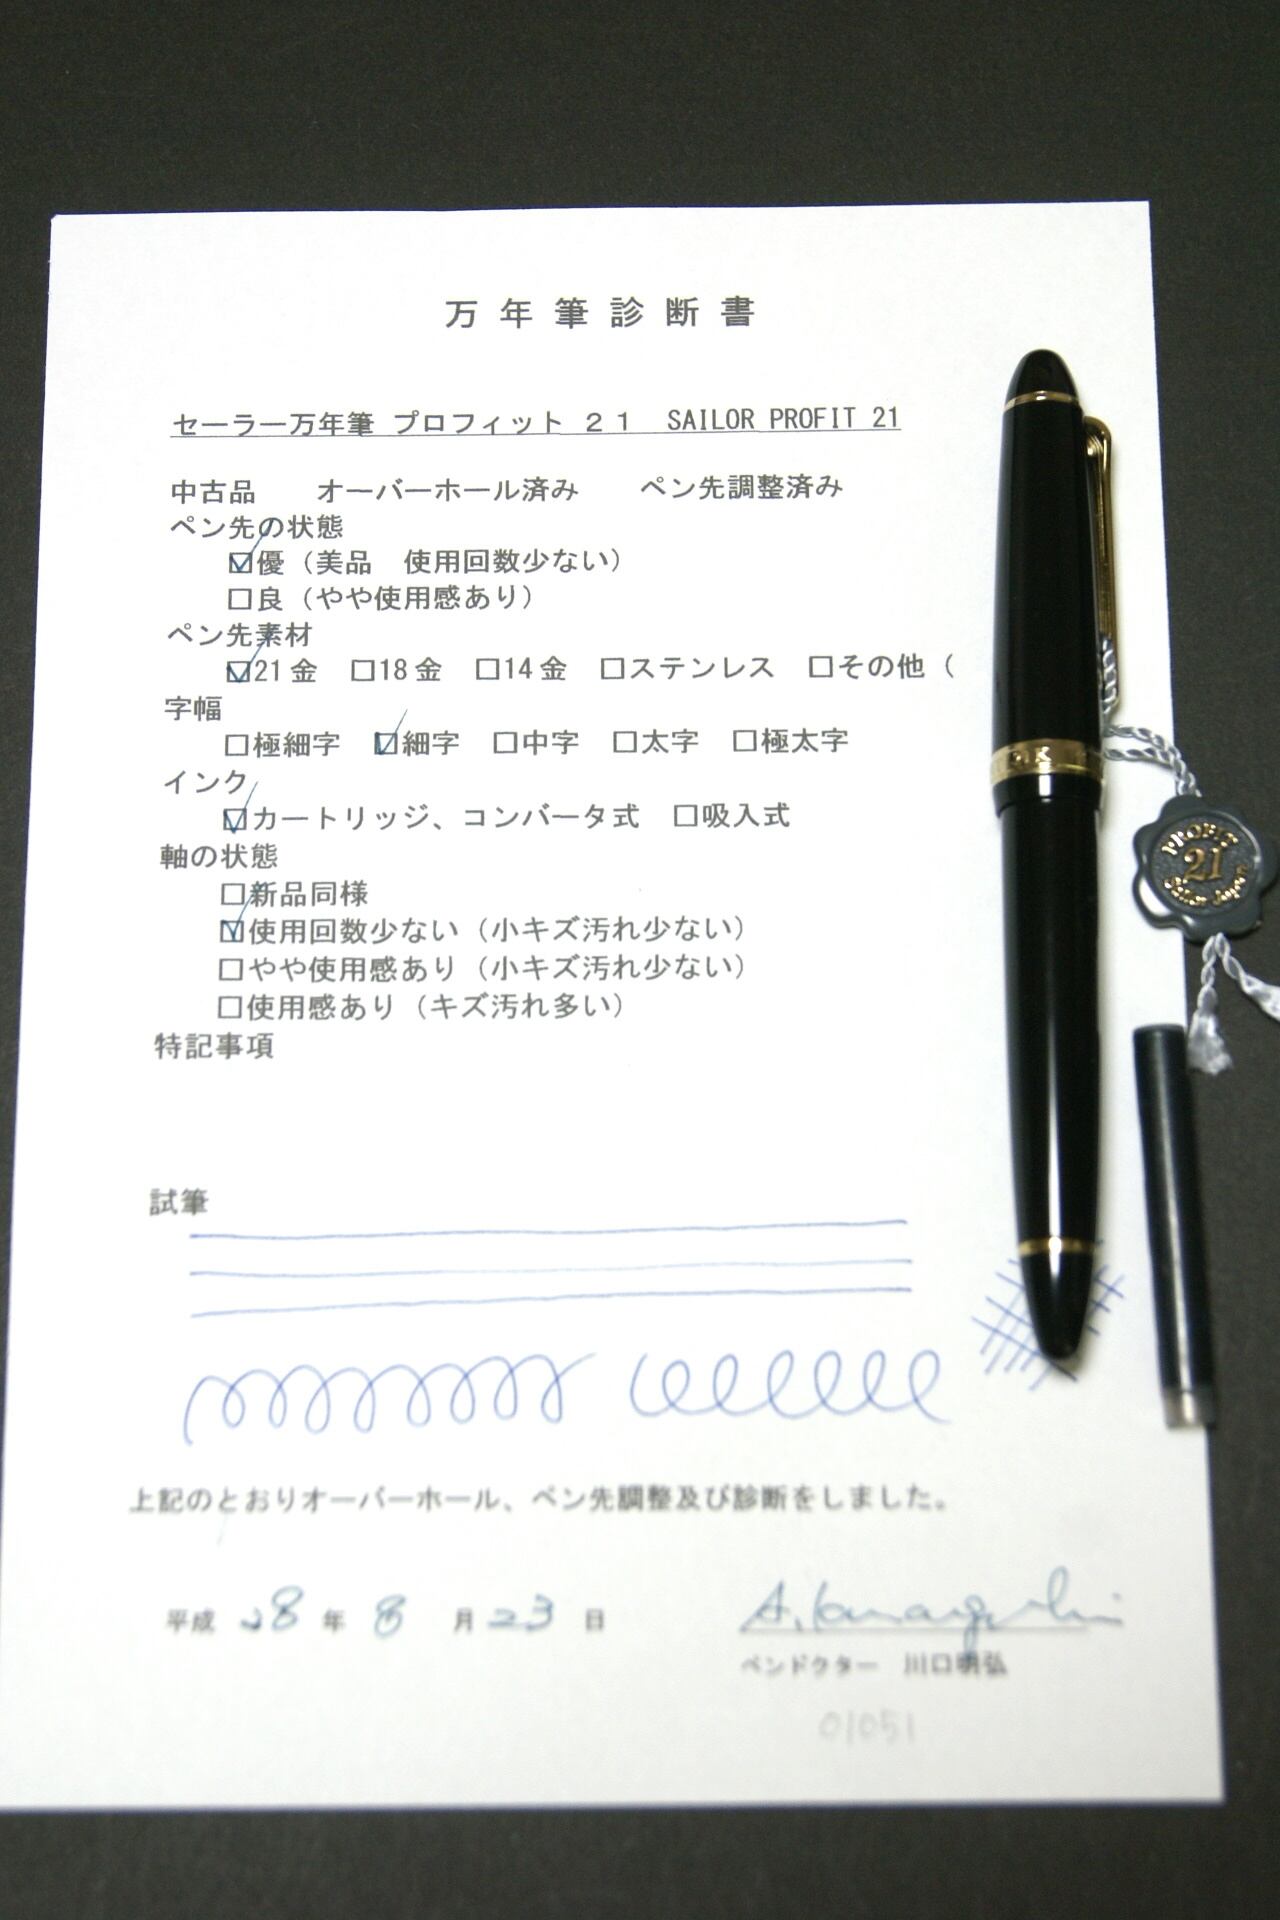 万年筆診断書
セーラー万年筆 プロフィット ２１ SAILOR PROFIT 21
中古品 オーバーホール済み ペン先調整済み
ペン先の状態
☑優（美品 使用回数少ない）
□良（やや使用感あり）
ペン先素材
☑21金 □18金 □14金 □ステンレス □その他（
字幅
□極細字 ☑細字 □中字 □太字 □極太字
インク
☑カートリッジ、コンバータ式 □吸入式
軸の状態
□新品同様
☑使用回数少ない（小キズ汚れ少ない）
□やや使用感あり（小キズ汚れ少ない）
□使用感あり（キズ汚れ多い）
特記事項
試筆
上記のとおりオーバーホール、ペン先調整及び診断をしました。
平成 28 年 8 月 23 日
A. Kawaguchi
ペンドクター 川口明弘
01051
PROFIT
21
Sailor Japan